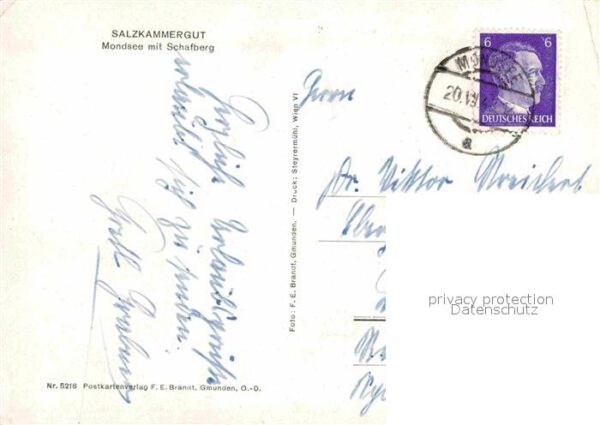 SALZKAMMERGUT
Mondsee mit Schafberg
Herzliche Urlaubsgrüße
erlaubt sich zu senden.
Gretl
Nr. 5216 Postkartenverlag F. E. Brandt, Gmunden, O.-D.
Foto: F. E. Brandt, Gmunden. — Druck: Steyrermühl, Wien VI
6 6
DEUTSCHES REICH
MONDSEE
20.
a
Herrn
Dr. Viktor
privacy protection
Datenschutz